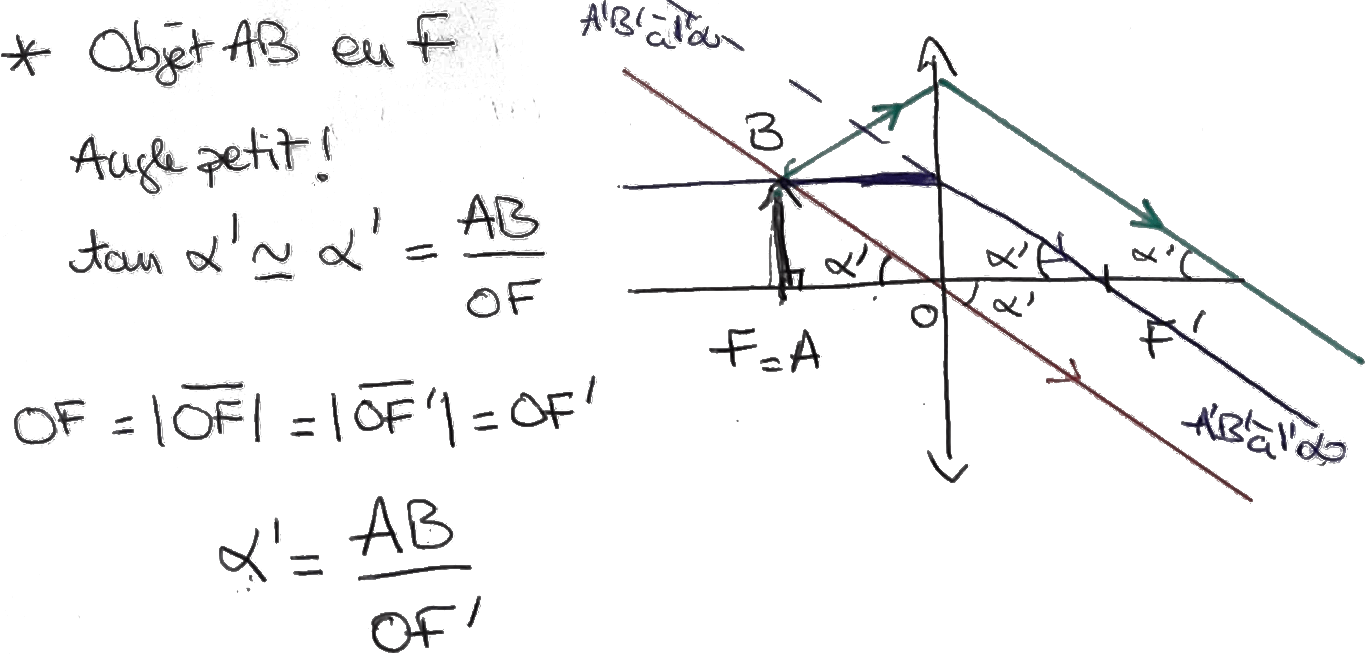 * Objet AB en F
Angle petit !
tan α' ≃ α' = AB / OF
OF = |O̅F̅| = |O̅F̅'| = OF'
α' = AB / OF'
A'B' à l'∞
B
α'
α'
α'
α'
O
F'
F=A
A'B' à l'∞